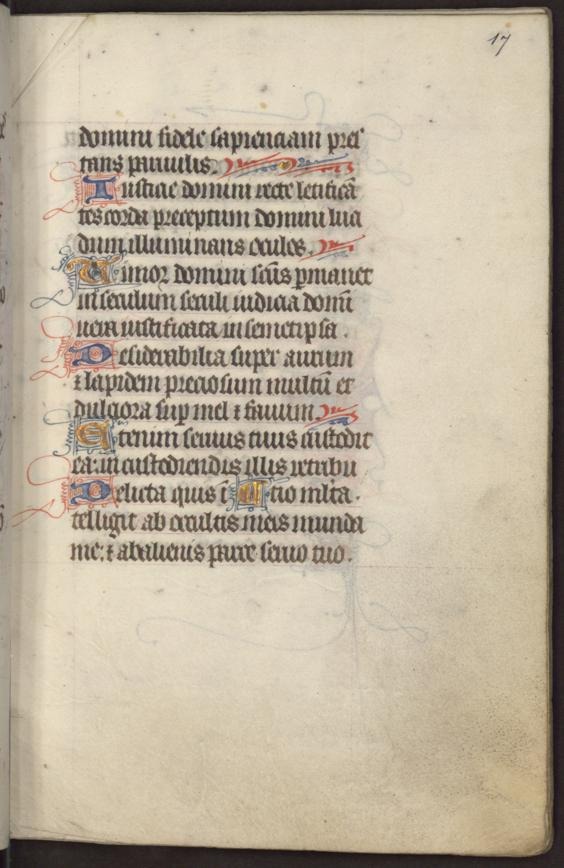 17
domini fidele sapienciam pres
tans paruulis.
Iusticie domini recte letificā
tes corda preceptum domini luci
dum illuminans oculos.
Timor domini scūs pmanet
in seculum seculi iudicia domī
uera iustificata in semetipsa.
Desiderabilia super aurum
⁊ lapidem preciosum multū et
dulciora sup mel ⁊ fauum
Etenim seruus tuus custodit
ea: in custodiendis illis retribu
Delicta quis ī tio mlta.
telligit ab occultis meis munda
me: ⁊ ab alienis parce seruo tuo.